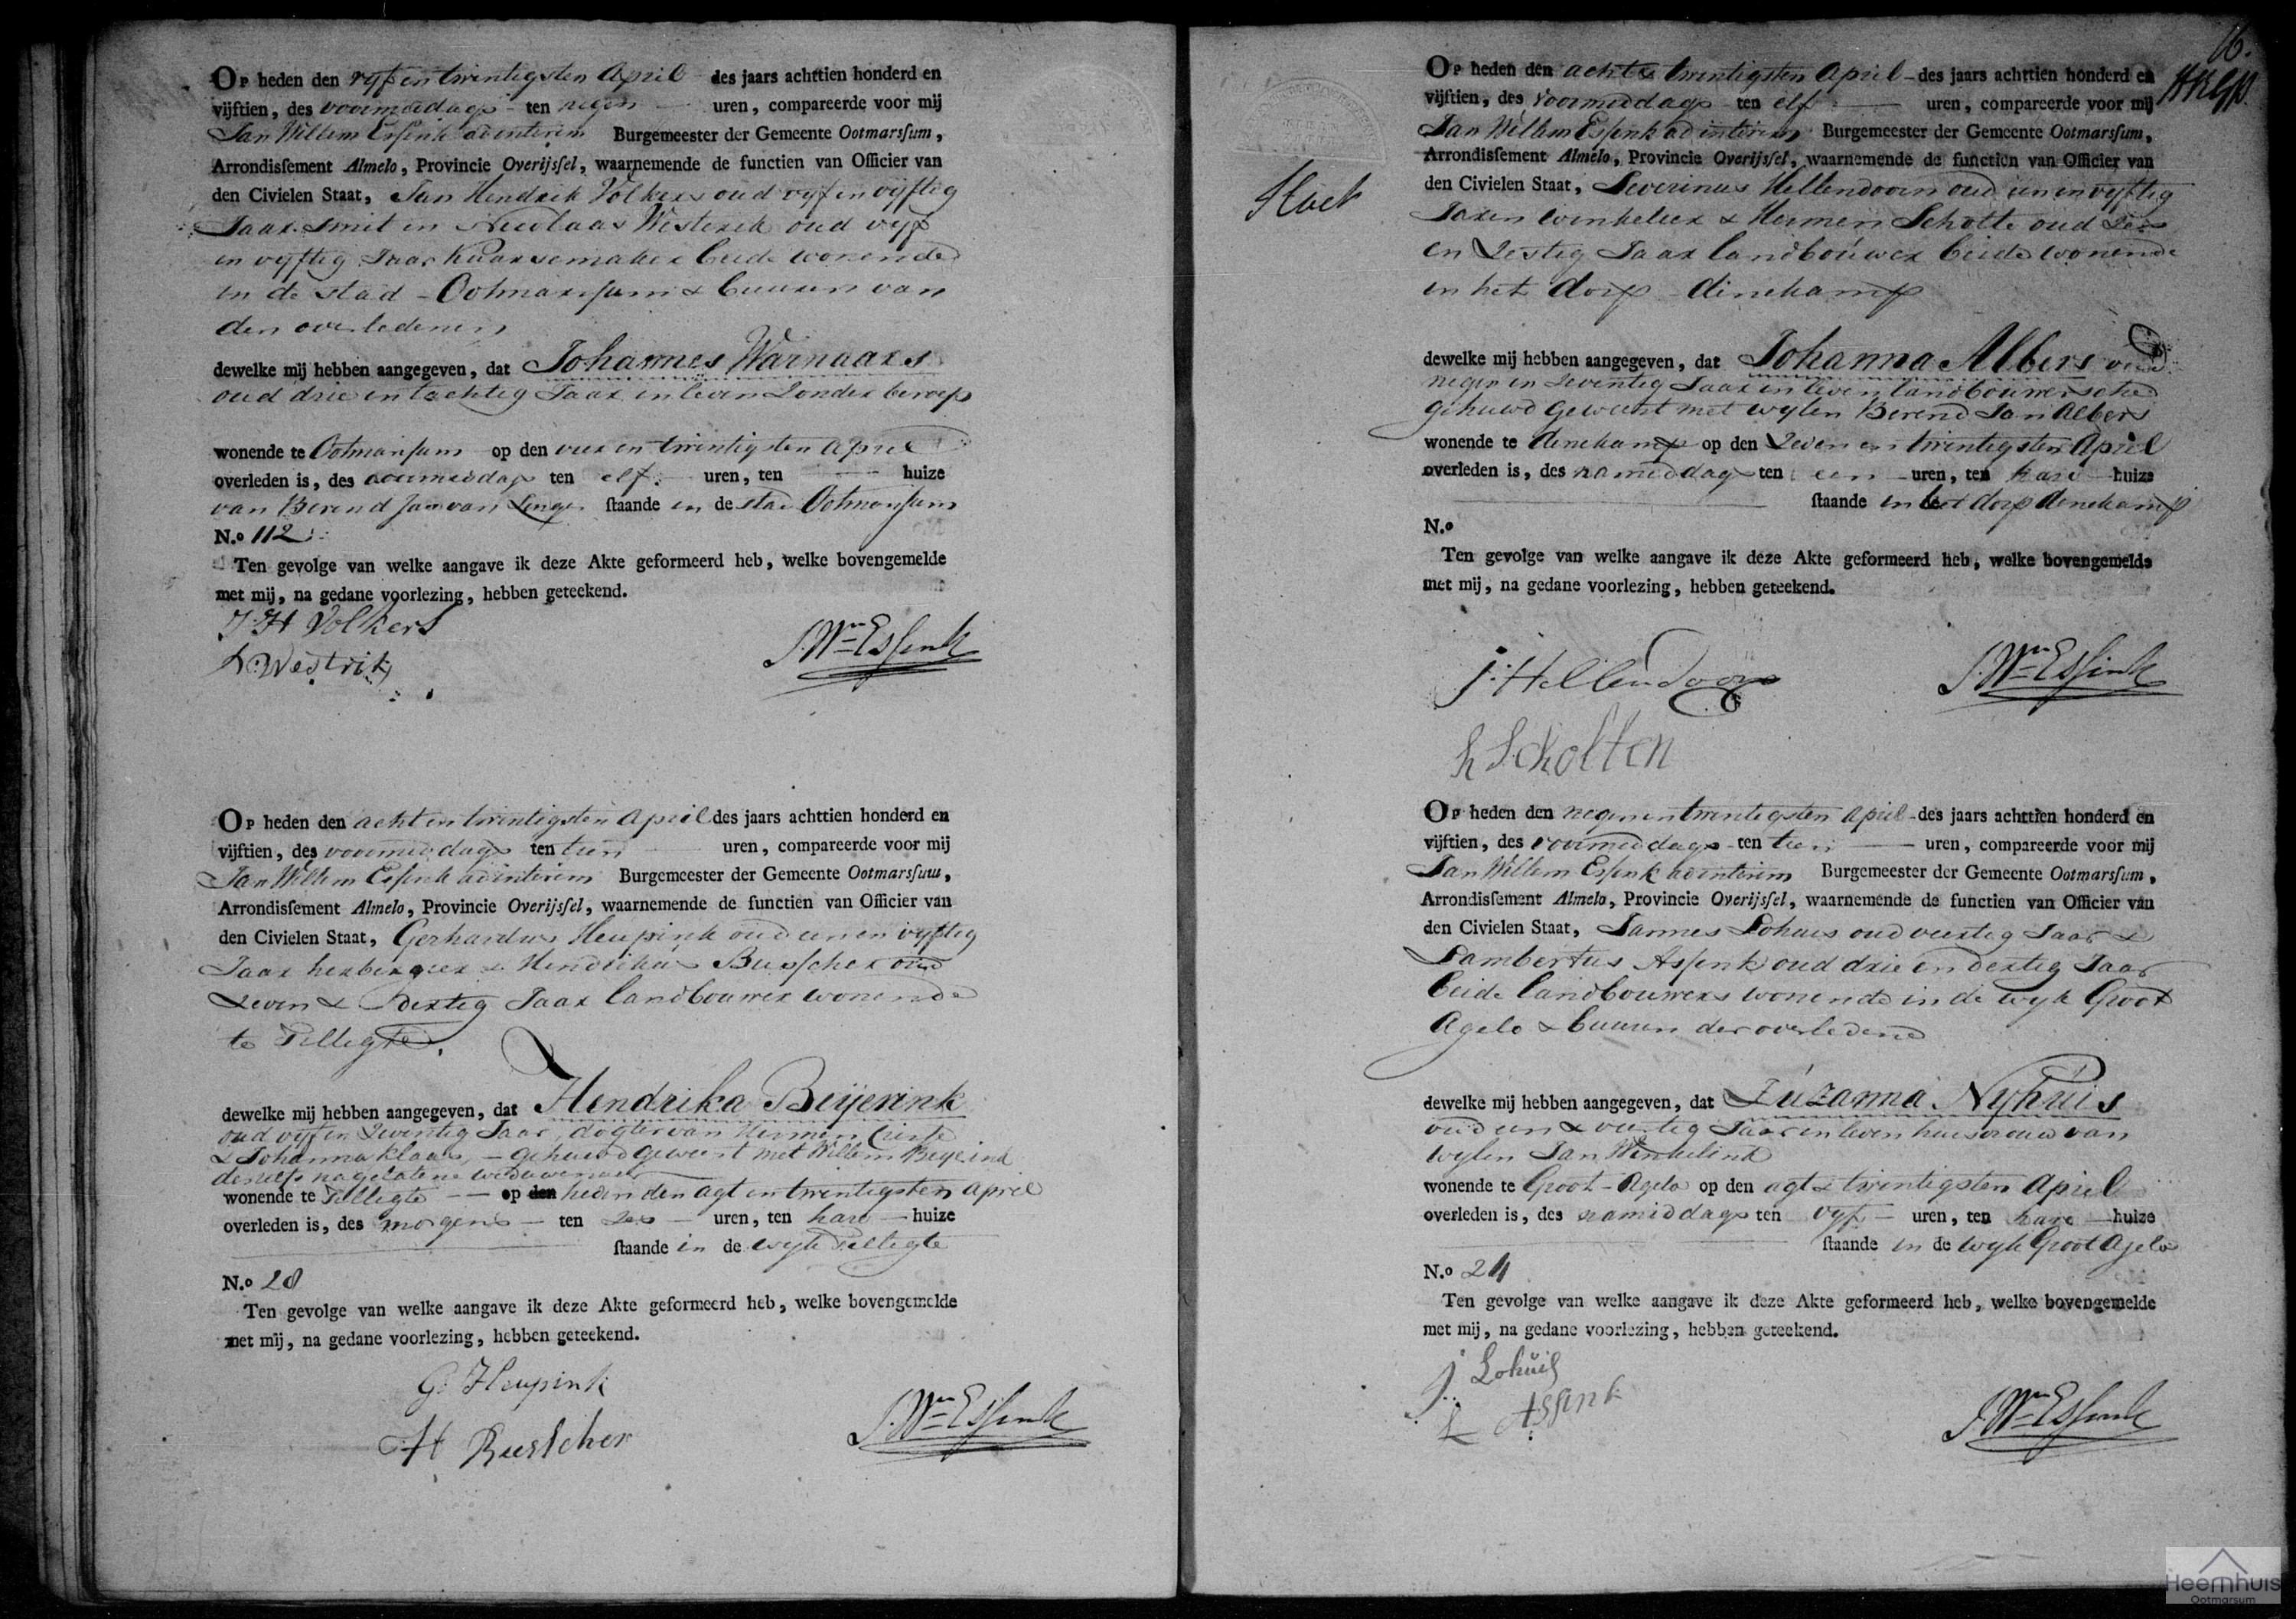 Op heden den vyf en twintigsten April des jaars achttien honderd en
vijftien, des voormiddags ten negen uren, compareerde voor mij
Jan Willem Essink ad interim Burgemeester der Gemeente Ootmarssum,
Arrondissement Almelo, Provincie Overijssel, waarnemende de functien van Officier van
den Civielen Staat, Jan Hendrik Volkers oud vyf en vyftig
Jaar Smit en Nicolaas Westerik oud vyf
en vyftig Jaar beide wonende
in de stad Ootmarssum & buuren van
den overledenen
dewelke mij hebben aangegeven, dat Johannes Warnaars
oud drie en tachtig Jaar in leven zonder beroep
wonende te Ootmarssum op den vier en twintigsten April
overleden is, des voormiddags ten elf uren, ten huize
van Berend Jan van Lenge staande in de stad Ootmarssum
N.o 112
Ten gevolge van welke aangave ik deze Akte geformeerd heb, welke bovengemelde
met mij, na gedane voorlezing, hebben geteekend.
J H Volkers
N. Westrik
J. Wm Essink
Op heden den acht en twintigsten April des jaars achttien honderd en
vijftien, des voormiddags ten tien uren, compareerde voor mij
Jan Willem Essink ad interim Burgemeester der Gemeente Ootmarssum,
Arrondissement Almelo, Provincie Overijssel, waarnemende de functien van Officier van
den Civielen Staat, Gerhardus Heupink oud een en vyftig
Jaar herbergier & Hendrikus Busscher oud
zeven & dertig Jaar landbouwer wonende
te Tilligte.
dewelke mij hebben aangegeven, dat Hendrika Beijerink
oud vyf en zeventig Jaar, dogter van Hermen
& Johanna Klaas, gehuwd geweest met Willem Beyerink
deszelfs nagelatene weduwe
wonende te Tilligte op den heden den agt en twintigsten April
overleden is, des morgens ten zes uren, ten hare huize
staande in de wyk Tilligte
N.o 28
Ten gevolge van welke aangave ik deze Akte geformeerd heb, welke bovengemelde
met mij, na gedane voorlezing, hebben geteekend.
G Heupink
H Busscher
J. Wm Essink
16.
Op heden den acht & twintigsten April des jaars achttien honderd en
vijftien, des voormiddags ten elf uren, compareerde voor mij
Jan Willem Essink ad interim Burgemeester der Gemeente Ootmarssum,
Arrondissement Almelo, Provincie Overijssel, waarnemende de functien van Officier van
den Civielen Staat, Severinus Hellendoorn oud een en vyftig
Jaren winkelier & Hermen Scholte oud zes
en zestig Jaar landbouwer beide wonende
in het dorp dinekamp
dewelke mij hebben aangegeven, dat Johanna Albers oud
negen en zeventig Jaar in leven landbouwersche
gehuwd geweest met wylen Berend Jan Albers
wonende te denekamp op den zeven en twintigsten April
overleden is, des namiddags ten een uren, ten hare huize
staande in het dorp denekamp
N.o
Ten gevolge van welke aangave ik deze Akte geformeerd heb, welke bovengemelde
met mij, na gedane voorlezing, hebben geteekend.
j: Hellendoorn
h Scholten
J. Wm Essink
Op heden den negen en twintigsten April des jaars achttien honderd en
vijftien, des voormiddags ten tien uren, compareerde voor mij
Jan Willem Essink ad interim Burgemeester der Gemeente Ootmarssum,
Arrondissement Almelo, Provincie Overijssel, waarnemende de functien van Officier van
den Civielen Staat, Jannes Lohuis oud veertig Jaar &
Lambertus Assink oud drie en dertig Jaar
beide landbouwers wonende in de wyk Groot
Agelo & buuren der overledene
dewelke mij hebben aangegeven, dat Zúzanna Nyhúis
oud een & veertig Jaar in leven huisvrouw van
wylen Jan Winkelink
wonende te Groot-Agelo op den agt & twintigsten April
overleden is, des namiddags ten vyf uren, ten hare huize
staande in de wyk Groot Agelo
N.o 24
Ten gevolge van welke aangave ik deze Akte geformeerd heb, welke bovengemelde
met mij, na gedane voorlezing, hebben geteekend.
j: Lohuis
L Assink
J. Wm Essink
Heemhuis
Ootmarsum